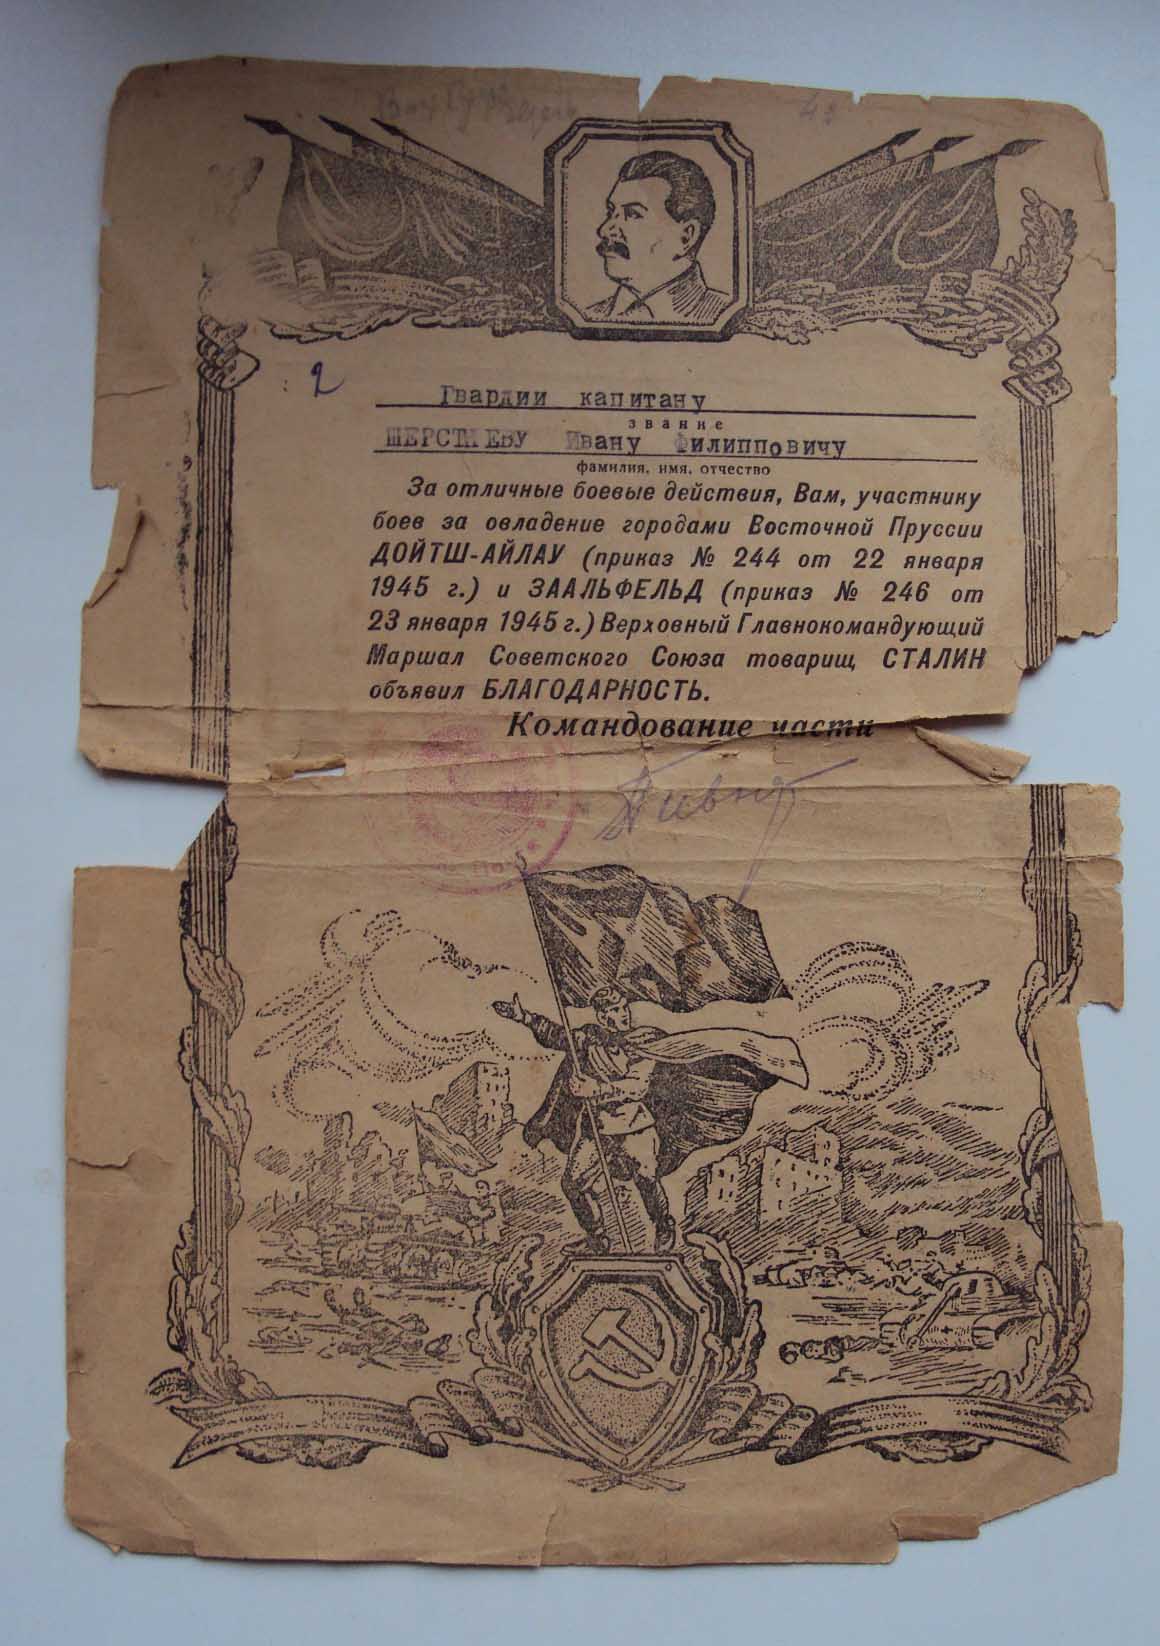 2
Гвардии капитану
звание
Ивану Филипповичу
фамилия, имя, отчество
За отличные боевые действия, Вам, участнику
боев за овладение городами Восточной Пруссии
ДОЙТШ-АЙЛАУ (приказ № 244 от 22 января
1945 г.) и ЗААЛЬФЕЛЬД (приказ № 246 от
23 января 1945 г.) Верховный Главнокомандующий
Маршал Советского Союза товарищ СТАЛИН
объявил БЛАГОДАРНОСТЬ.
Командование части